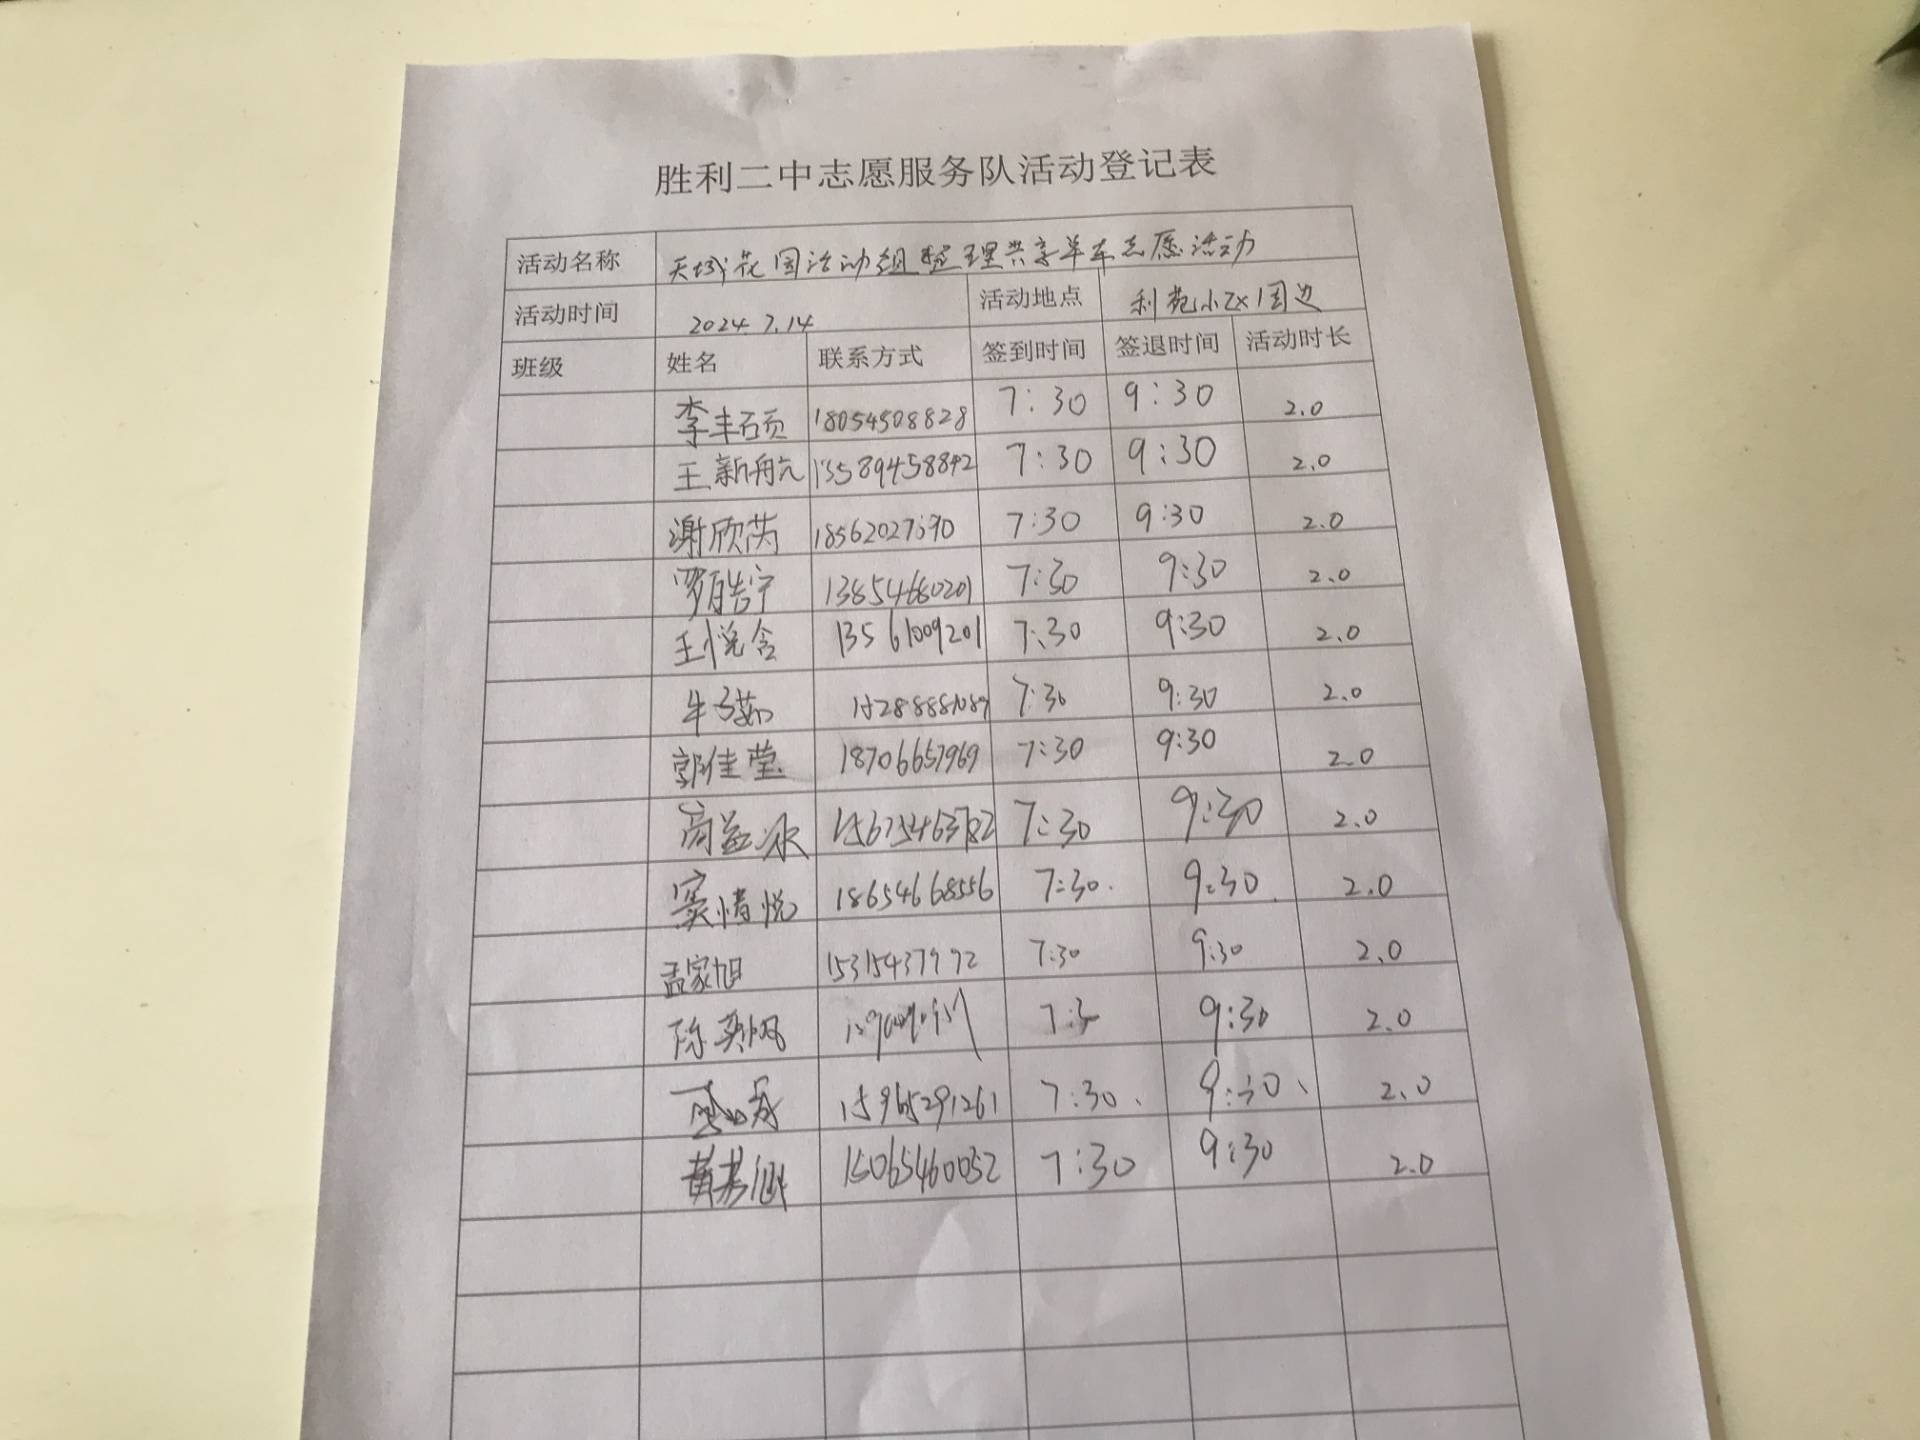 胜利二中志愿服务队活动登记表
活动名称 天域花园活动组整理共享单车志愿活动
活动时间 2024.7.14 活动地点 利苑小区周边
班级 姓名 联系方式 签到时间 签退时间 活动时长
李丰硕 18054508828 7:30 9:30 2.0
王新航 13589458842 7:30 9:30 2.0
谢欣芮 7:30 9:30 2.0
罗皓宁 13854680201 7:30 9:30 2.0
王悦含 13561009201 7:30 9:30 2.0
牛子茹 7:30 9:30 2.0
郭佳莹 18706657969 7:30 9:30 2.0
15675463782 7:30 9:30 2.0
窦惜悦 18654668556 7:30 9:30 2.0
孟家旭 15315437992 7:30 9:30 2.0
陈奕帆 9:30 2.0
15965291261 7:30 9:30 2.0
15065460052 7:30 9:30 2.0